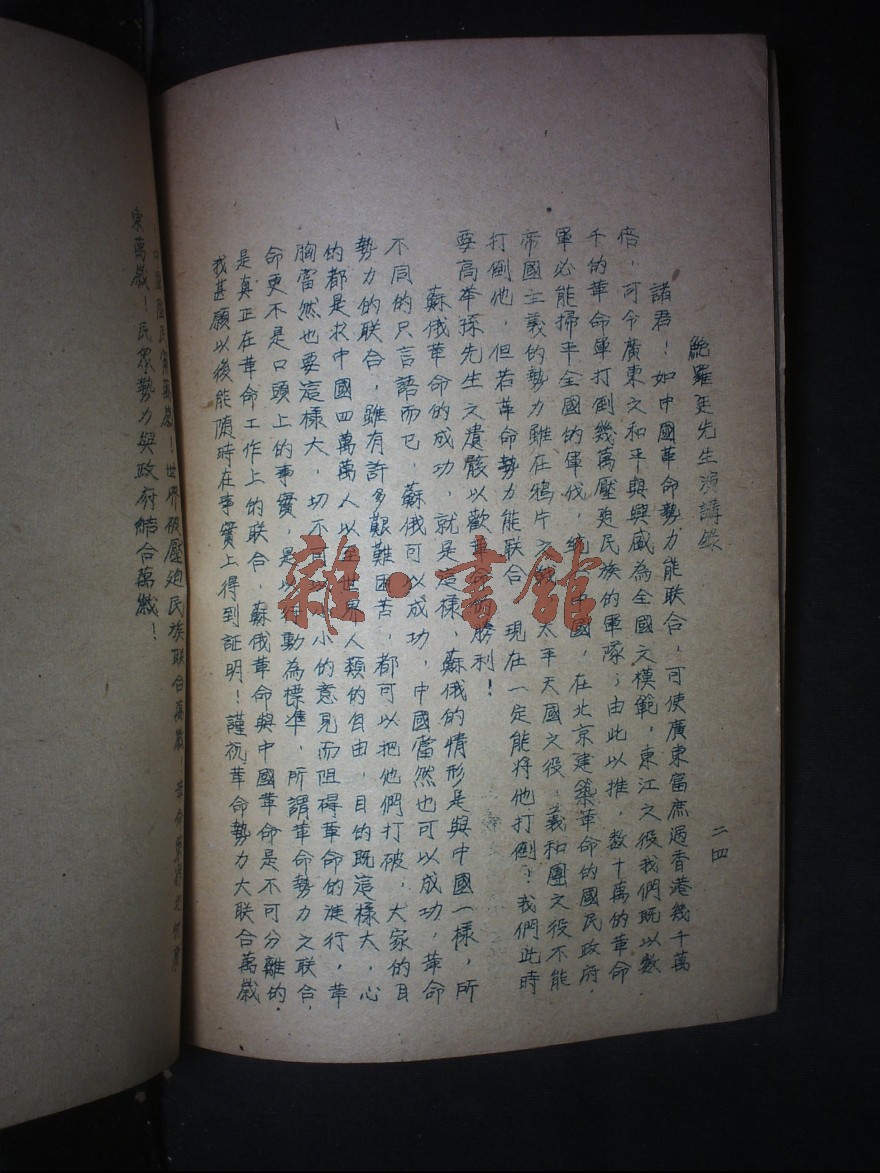 鮑羅廷先生演講錄
二四
諸君！如中國革命勢力能联合，可使廣東富庶過香港幾千萬
倍，可令廣東之和平與興盛為全國之模範，東江之役我們既以數
千的革命軍打倒幾萬壓迫民族的軍隊；由此以推，数十萬的革命
軍必能掃平全國的軍伐，統 中國，在北京建築革命的國民政府．
帝國主義的勢力雖在鴉片之 太平天國之役，義和團之役不能
打倒他，但若革命勢力能联合 現在一定能将他打倒？我們此時
要高举孫先生之遺骸以歡 革命的勝利！
蘇俄革命的成功，就是這樣，蘇俄的情形是與中國一樣，所
不同的只言語而已，蘇俄可以成功，中國當然也可以成功，革命
勢力的联合，雖有許多艱難困苦，都可以把他們打破，大家的目
的都是求中國四萬萬人以至世界人類的自由，目的既這樣大，心
胸當然也要這樣大，切不可 小的意見而阻碍革命的進行，革
命更不是口頭上的事實，是以行動為標準，所謂革命勢力之联合，
是真正在革命工作上的联合，蘇俄革命與中國革命是不可分離的．
我甚願以後能随時在事實上得到証明！謹祝革命勢力大联合萬歲
國民 萬歲！世界被壓迫民族联合萬歲 革命
東萬歲！民眾勢力與政府結合萬歲！
雜·書館